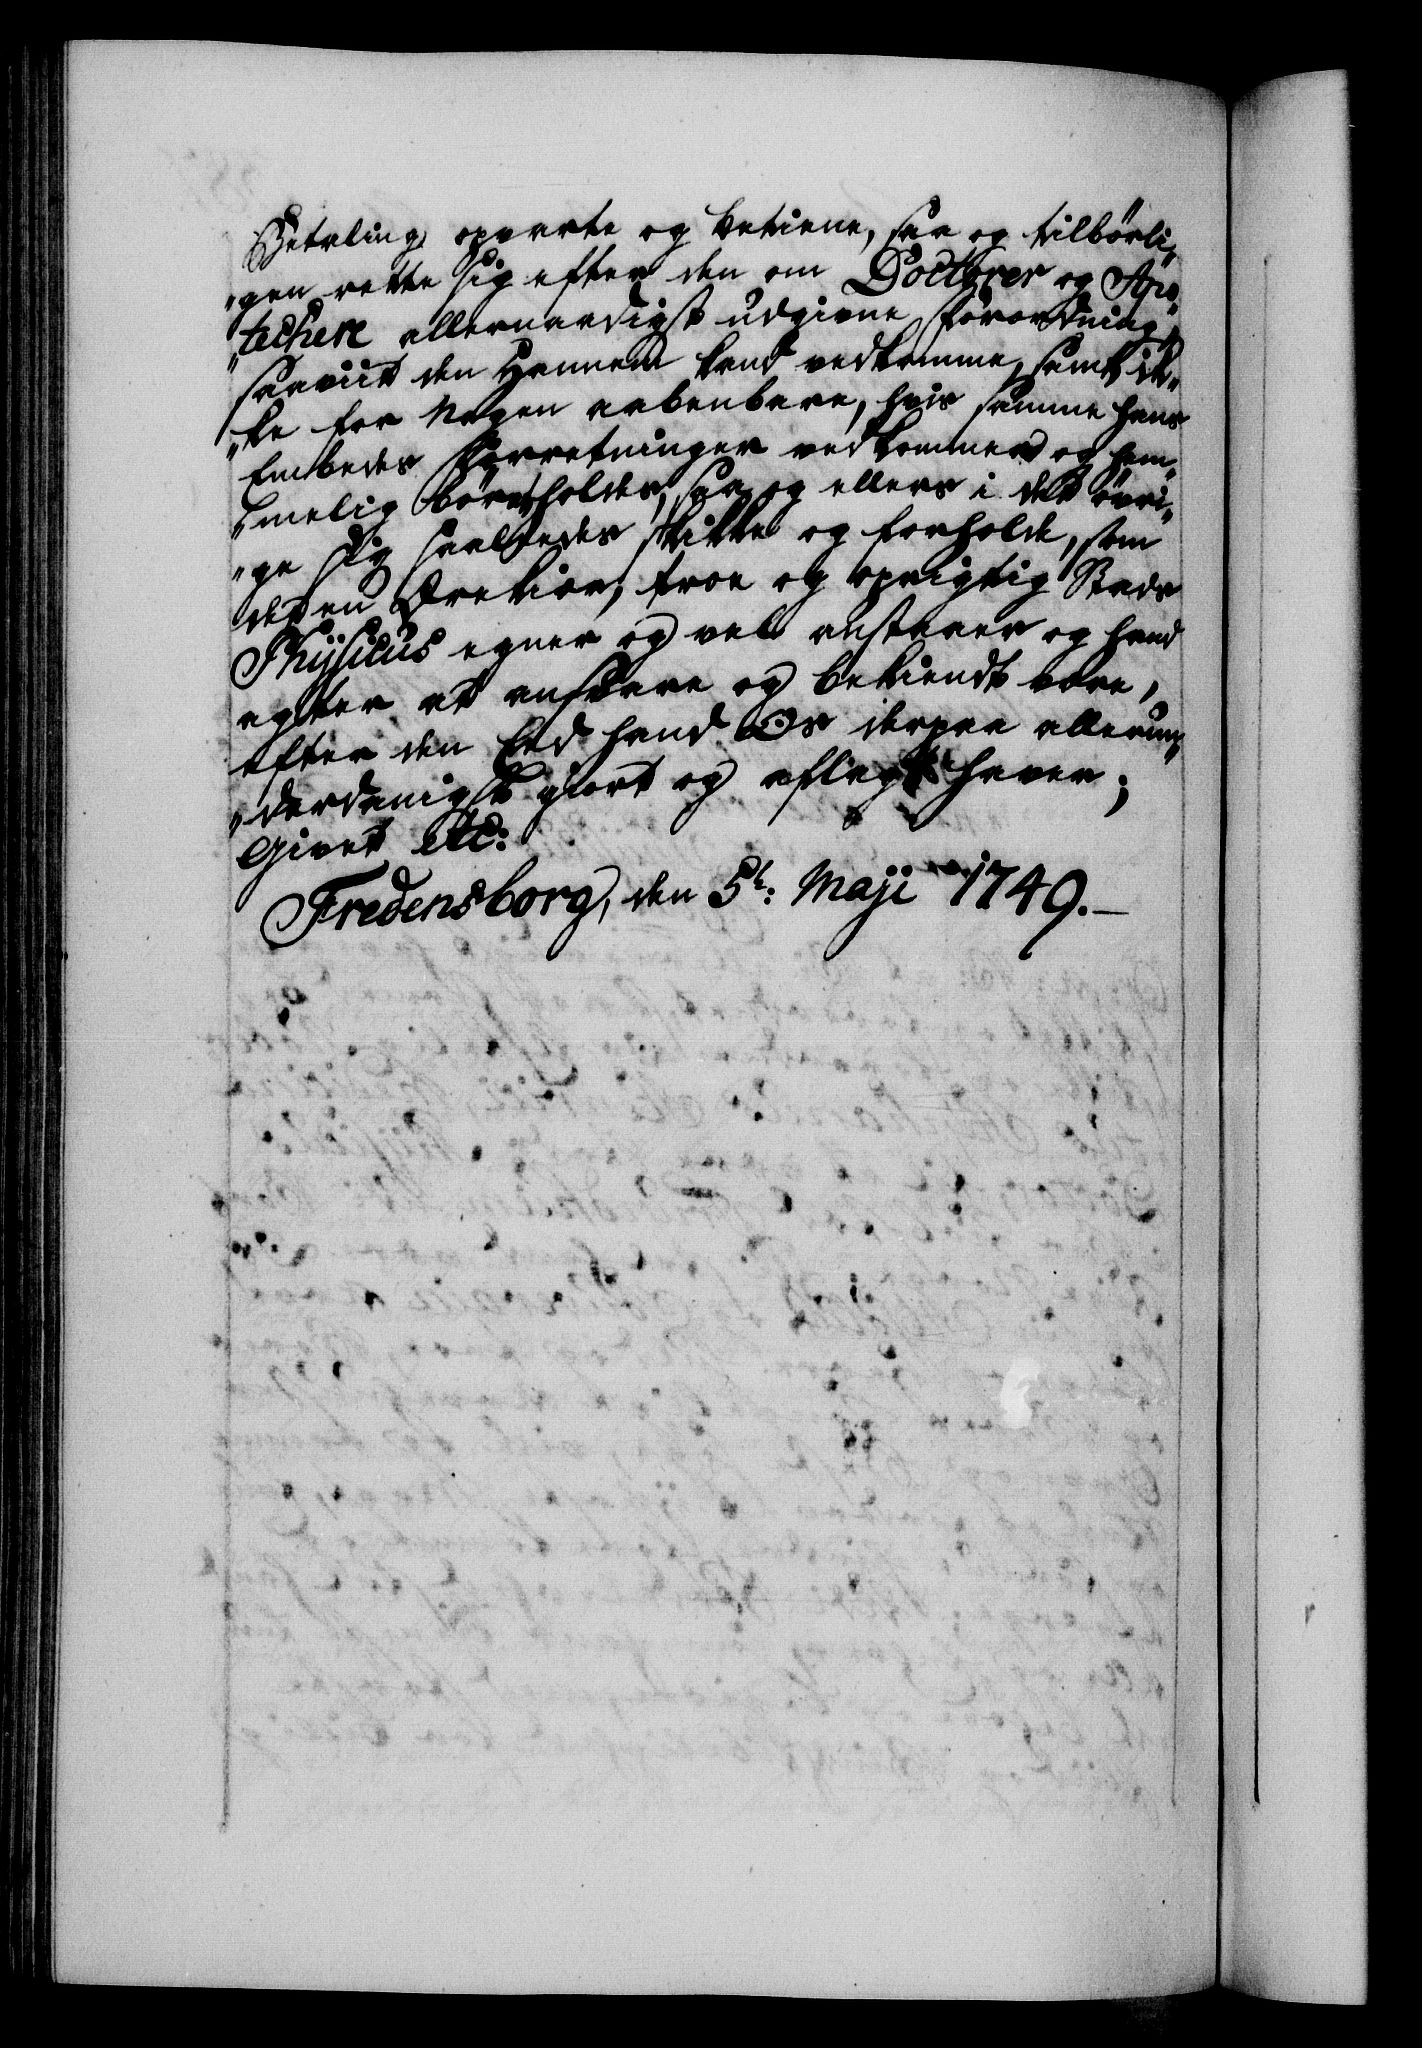 Betaling opvarte og betiene, saa og tilbørli„
„gen rette sig efter den om Doctorer og Apo„
„techere allernaadigst udgivne Forordning,
saaviit den Hannem kand vedkomme, samt ik„
„ke for Nogen aabenbare, hvis samme hans
Embedes Forretninger vedkommer og hem„
„melig bør holdes, saa og ellers i det øvri„
„ge sig saaledes skikke og forholde, som
det en Ærekiær, troe og oprigtig Stads
Physicus egner og vel anstaaer og hand
agter at ansvare og bekiendt være,
efter den Eed hand Os derpaa allerun„
„derdanigst giort og aflagt haver;
Givet etc:
Fredensborg, den 5t: Maji 1749.